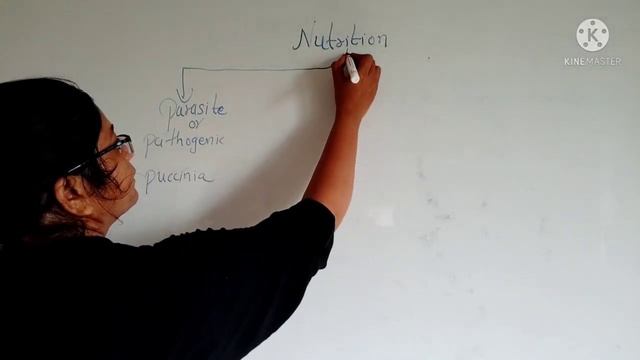 Nutrition
parasite
or
pathogenic
puccinia
K
KINEMASTER